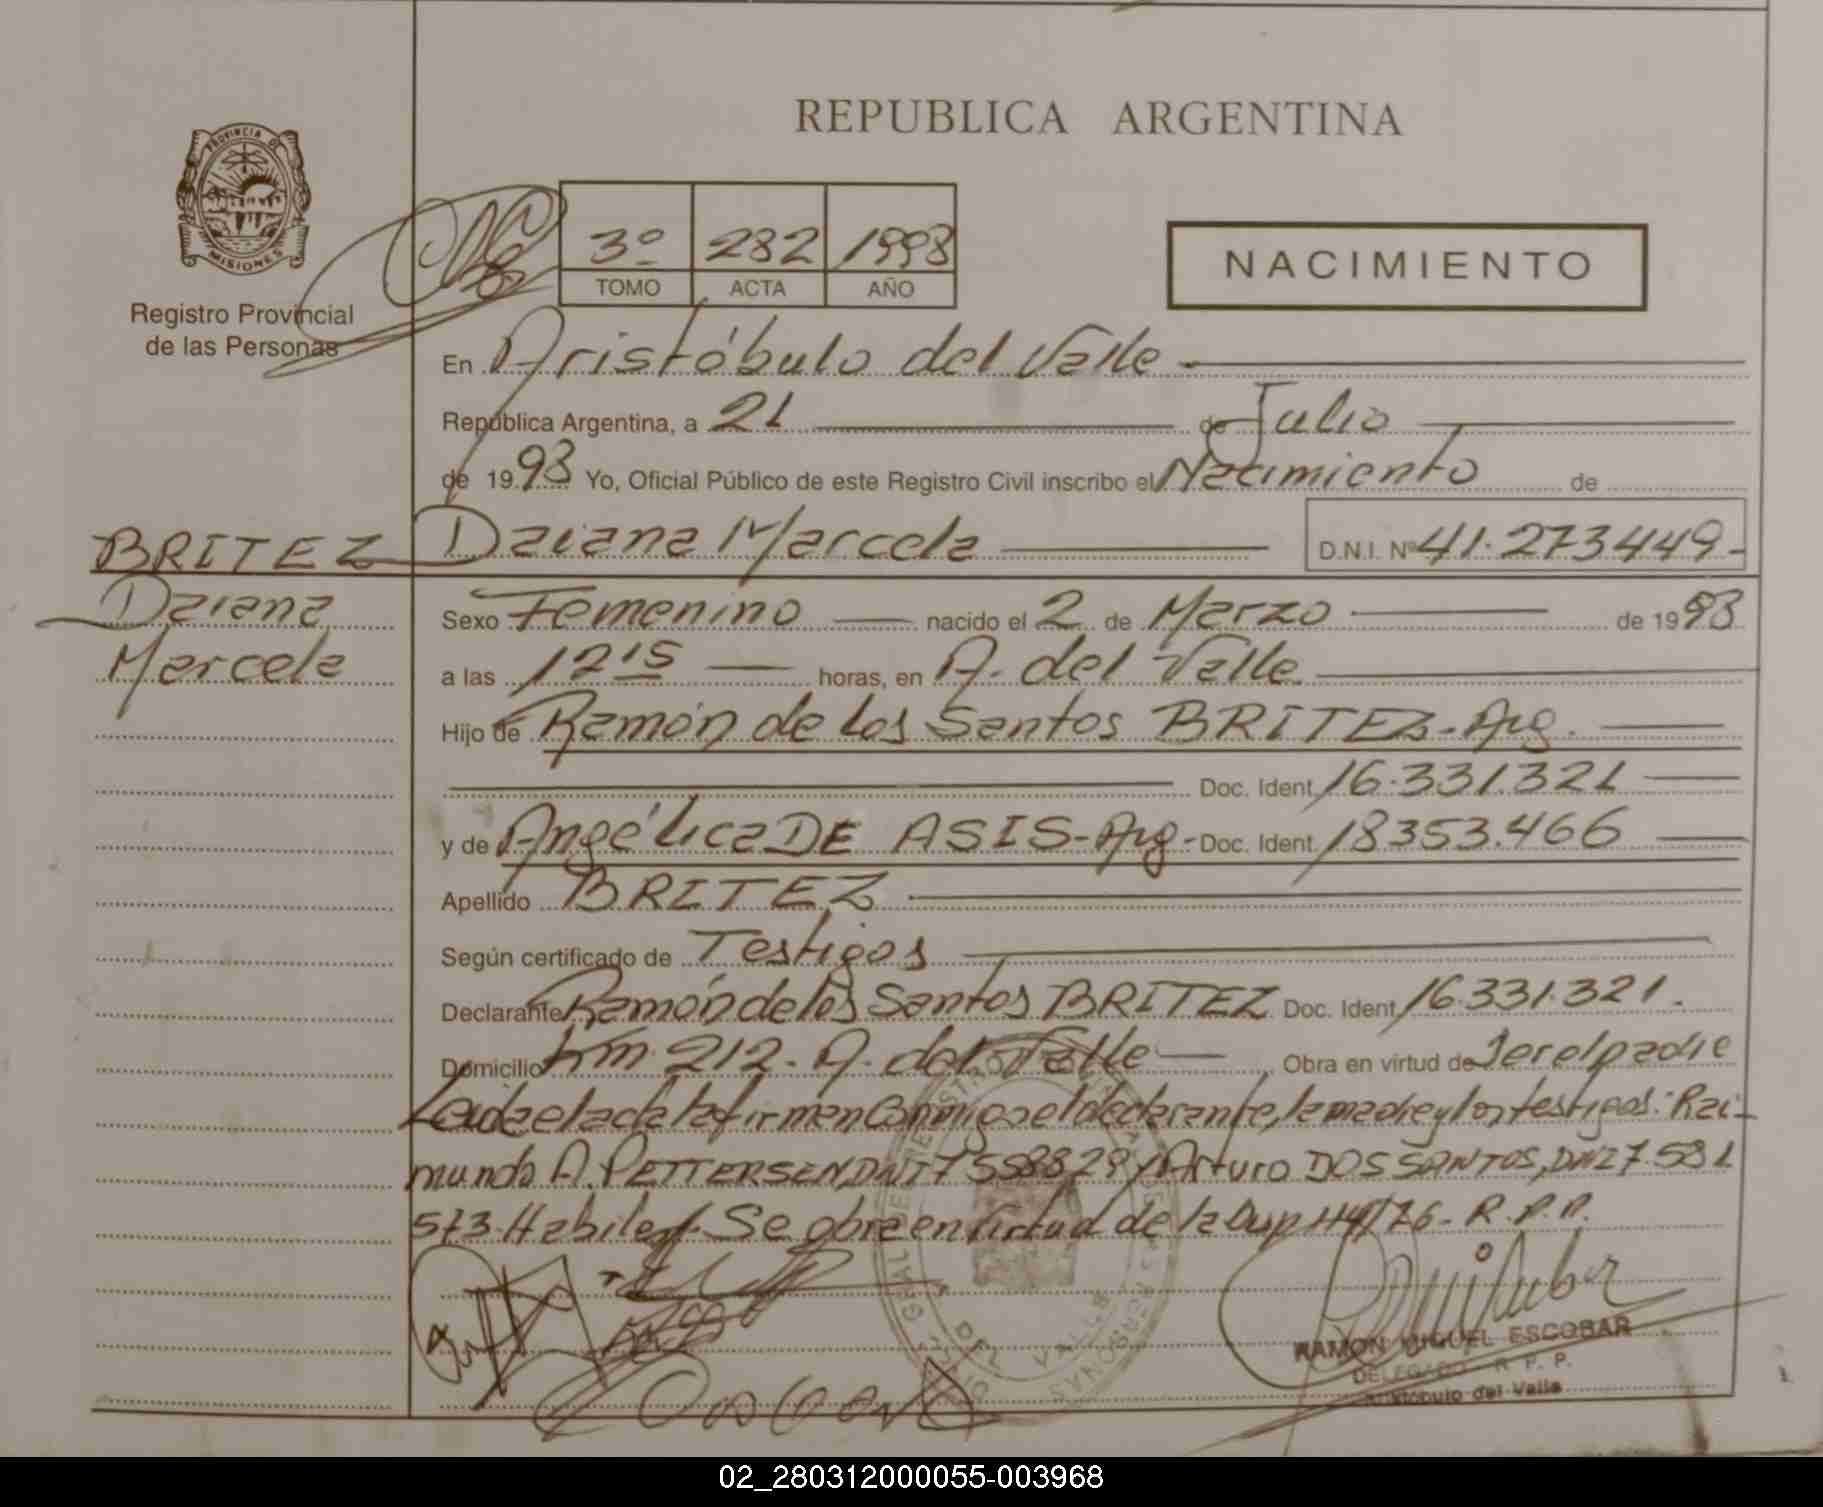 REPUBLICA ARGENTINA
PROVINCIA DE
MISIONES
Registro Provincial
de las Personas
3º 282 1998
TOMO ACTA AÑO
NACIMIENTO
En Aristóbulo del Valle
República Argentina, a 21 de Julio
de 1998 Yo, Oficial Público de este Registro Civil inscribo el Nacimiento de
BRITEZ Daiana Marcela D.N.I. Nº 41.273449
Daiana
Marcela
Sexo Femenino nacido el 2 de Marzo de 1998
a las 12 15 horas, en A. del Valle
Hijo de Ramón de los Santos BRITEZ - Arg.
Doc. Ident. 16.331.321
y de Angélica DE ASIS - Arg - Doc. Ident. 18353.466
Apellido BRITEZ
Según certificado de Testigos
Declarante Ramón de los Santos BRITEZ Doc. Ident. 16.331.321.
Domicilio Km. 212. A. del Valle, Obra en virtud de Ser el padre
Leida el acta la firman conmigo el declarante, la madre y los testigos: Rai-
mundo A. PETTERSEN, DNI 7558829 y Arturo DOS SANTOS, DNI 7.581
573. Habiles. Se obra en virtud de la 76 - R.P.P.
RAMON MIGUEL ESCOBAR
DELEGADO R. P. P.
Aristobulo del Valle
DEL VALLE
02_280312000055-003968